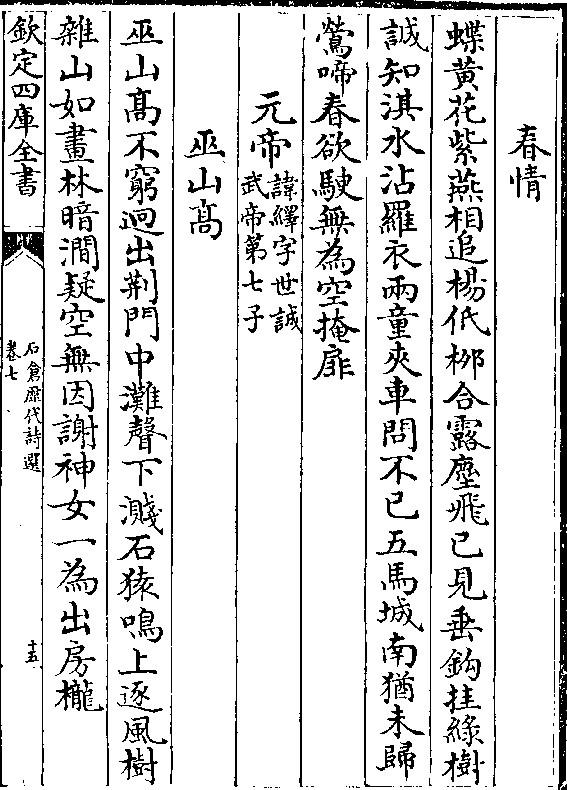 春情
蝶黃花紫燕相追楊低栁合露塵飛已見垂鈎挂緑樹
誠知淇水沾羅衣兩童夾車問不已五馬城南猶未歸
鶯啼春欲駛無為空掩扉
元帝
諱繹字世誠
武帝第七子
巫山髙
巫山髙不窮迥出荆門中灘聲下濺石猿鳴上逐風樹
雜山如畫林暗澗疑空無因謝神女一為出房櫳
欽定四庫全書
石倉歷代詩選
卷七
十五